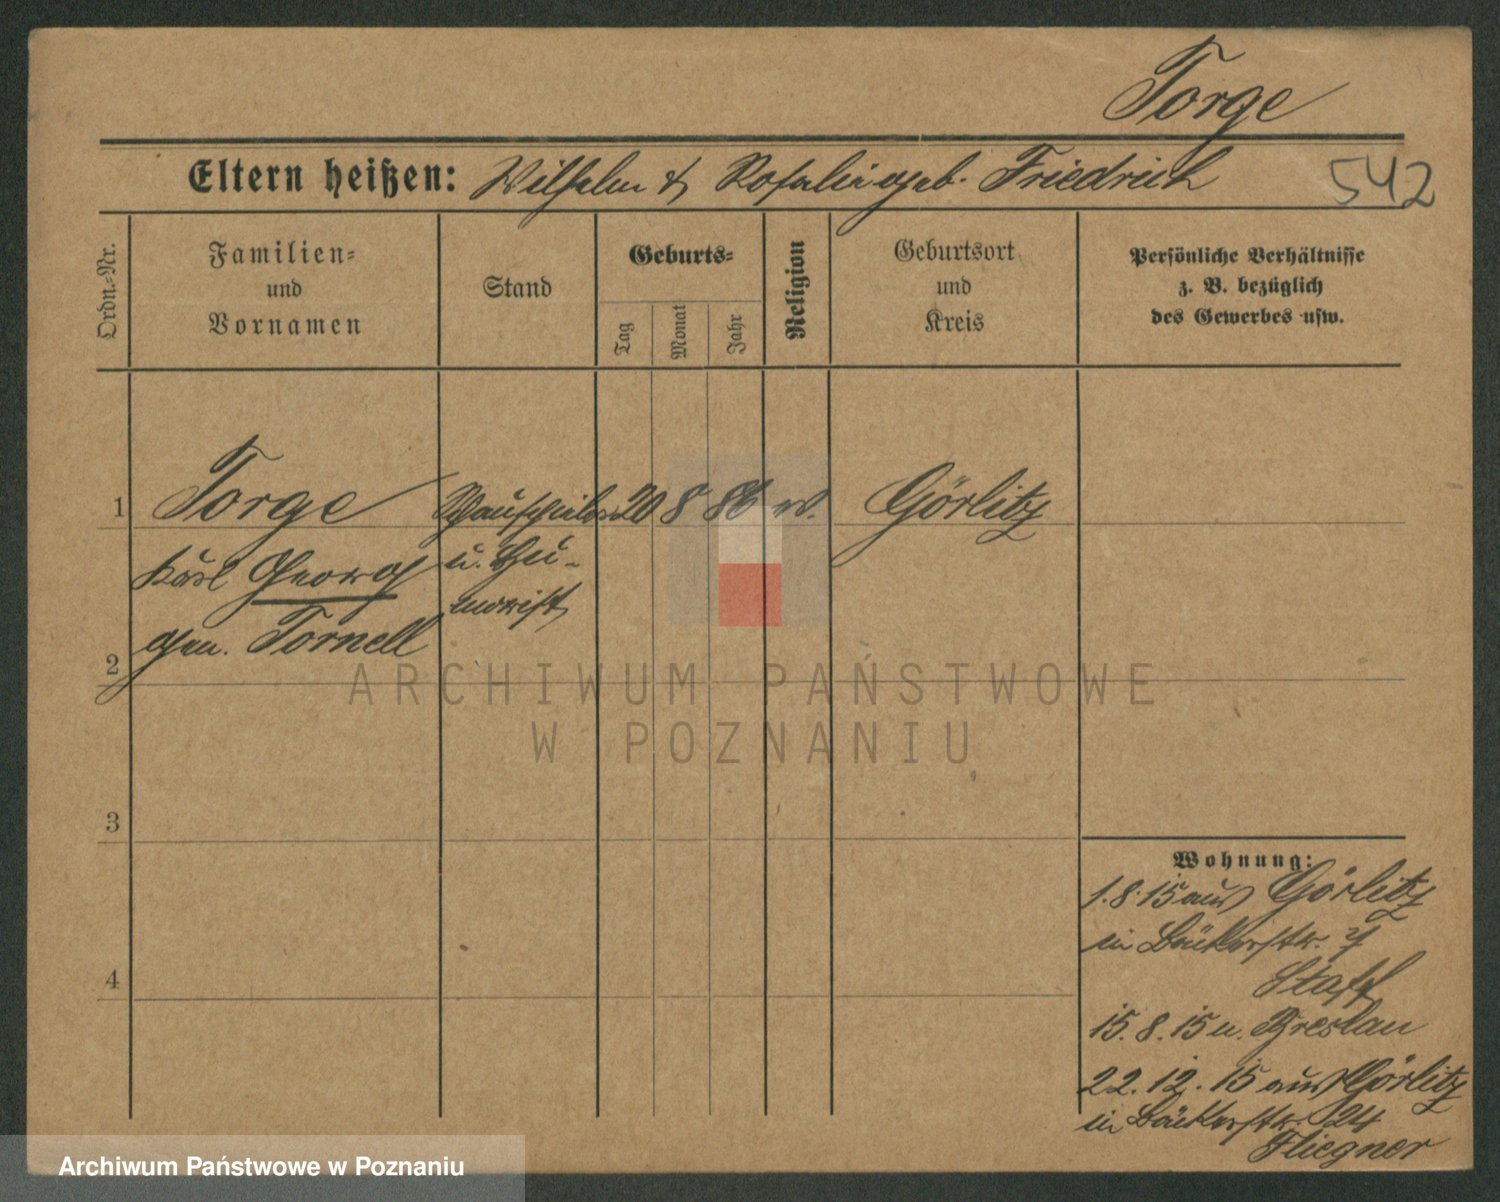 Torge
Eltern heißen: Wilhelm & Rosalie geb. Friedrich
542
Ordn.-Nr.
Familien-
und
Vornamen
Stand
Geburts-
Tag
Monat
Jahr
Religion
Geburtsort
und
Kreis
Persönliche Verhältnisse
z. B. bezüglich
des Gewerbes usw.
1
Torge
Karl Georg
gen. Tornell
Schauspieler
u. Hu-
morist
20
8
86
Görlitz
2
3
4
Wohnung:
1.8.15 aus Görlitz
in Bäckerstr.
15.8.15 n. Breslau
22.12.15 aus Görlitz
in Bäckerstr. 24
Fliegner
ARCHIWUM PAŃSTWOWE
W POZNANIU
Archiwum Państwowe w Poznaniu